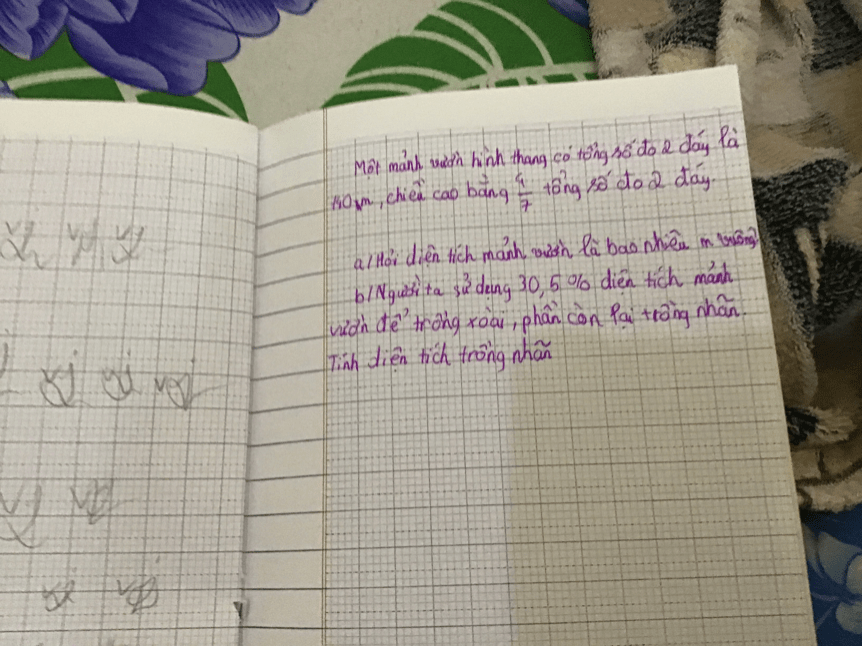 Một mảnh vườn hình thang có tổng số đo 2 đáy là
140m, chiều cao bằng 4/7 tổng số đo 2 đáy.
a/ Hỏi diện tích mảnh vườn là bao nhiêu m vuông?
b/ Người ta sử dụng 30,5% diện tích mảnh
vườn để trồng xoài, phần còn lại trồng nhãn.
Tính diện tích trồng nhãn